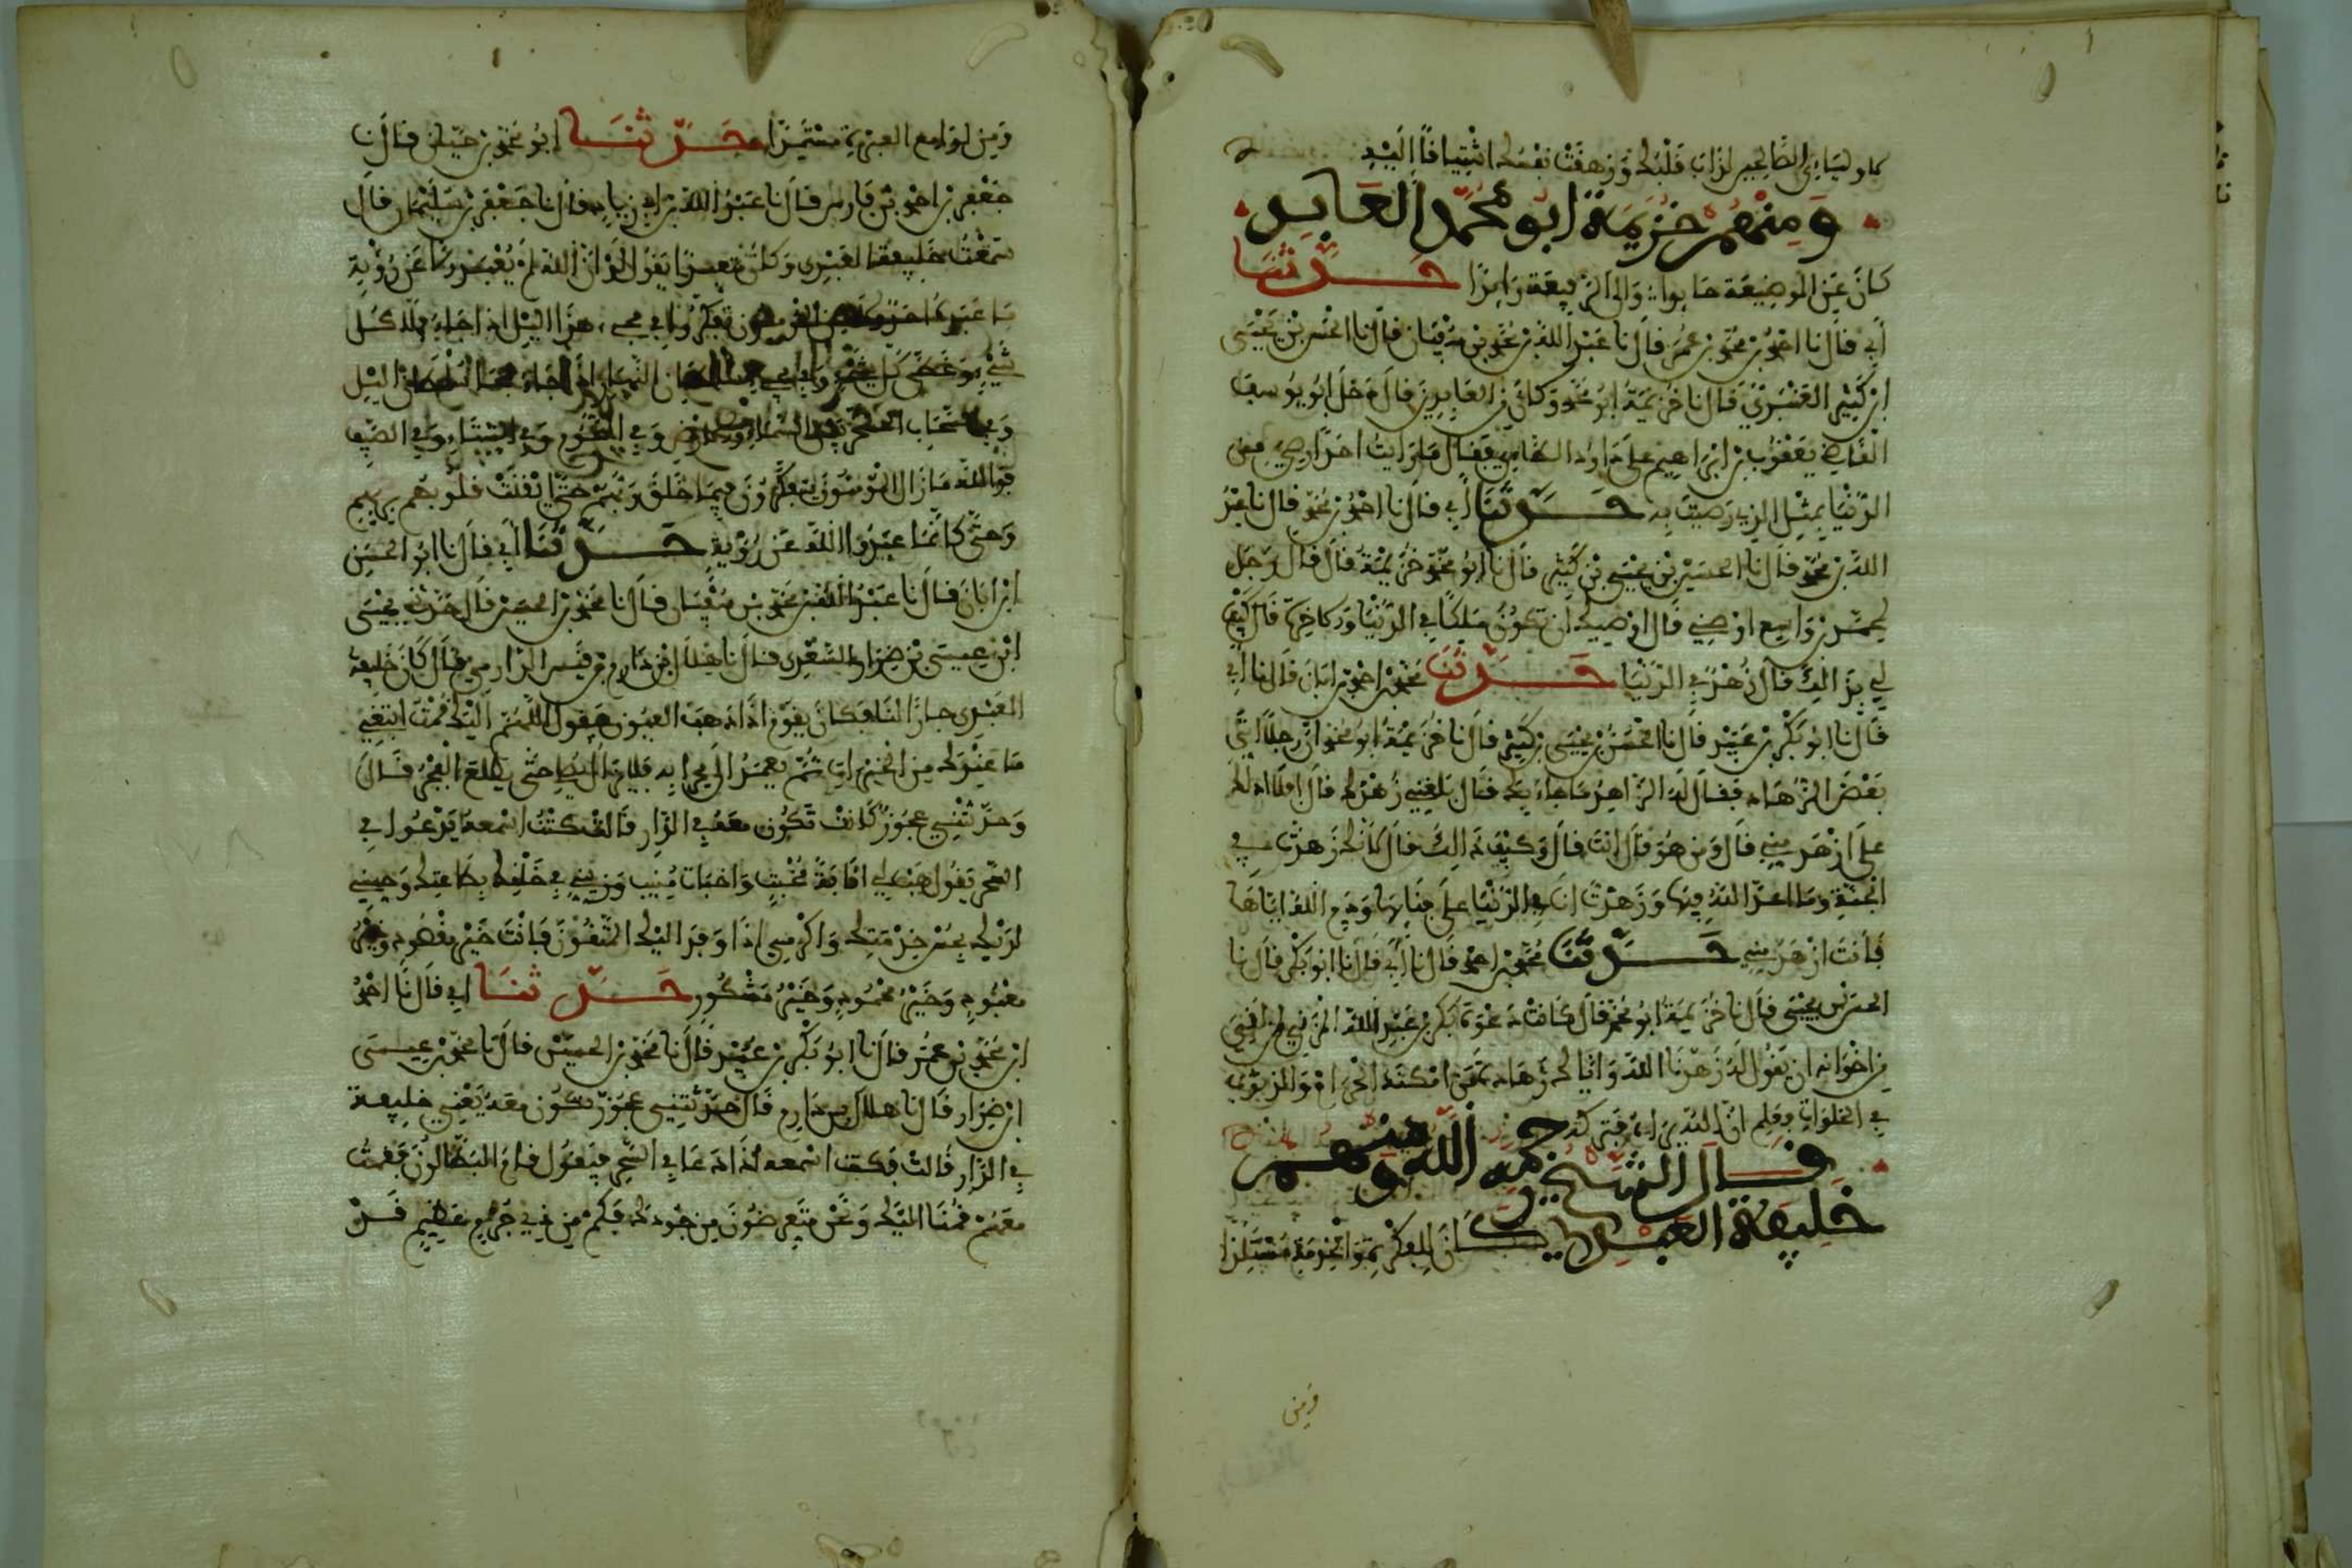 لاوليائي الصالحين لذاب قلبك وزهقت نفسك اشتياقا إليه
ومنهم خزيمة أبو محمد العابد
كان عن الوضيعة حايدا وإلى الرفيعة رايدا حدثنا
أبي قال نا احمد بن محمد بن عمر قال نا عبد الله بن محمد بن سفيان قال نا الحسن بن يحيى
ابن كثير العنبري قال نا خزيمة ابو محمد وكان من العابدين قال دخل ابو يوسف
القاضي يعقوب بن ابراهيم على داود الطاءي فقال ما رايت احدا رضي من
الدنيا بمثل الذي رضيت به حدثنا أبي قال نا احمد بن محمد قال نا عبد
الله بن محمد قال نا الحسين بن يحيى بن كثير قال نا ابو محمد خزيمة قال قال رجل
لمحمد بن واسع اوصني قال اوصيك ان تكون ملكا في الدنيا والاخرة قال كيف
لي بذالك قال ازهد في الدنيا حدثنا محمد بن احمد بن ابان قال نا أبي
قال نا ابو بكر بن عبيد قال نا الحسن بن يحيى بن كثير قال نا خزيمة ابو محمد ان رجلا اتى
بعض الزهاد فقال له الزاهد ما جاء بك قال بلغني زهدك قال افلا ادلك
على ازهد مني قال ومن هو قال انت قال وكيف ذالك قال لانك زهدت في
الجنة وما اعد الله فيها وزهدت انا في الدنيا على فنايها وذم الله اياها
فانت ازهد مني حدثنا محمد بن احمد قال نا أبي قال نا ابو بكر قال نا
الحسن بن يحيى قال نا خزيمة ابو محمد قال كانت دعوة بكر بن عبد الله المزني لمن لقي
من اخوانه ان يقول له زهدنا الله واياك زهادة من امكنه الحرام والذنوب
في الخلوات فعلم ان الله يراه فتركه
قال الشيخ رحمه الله ومنهم
خليفة العبدي كان للفكر والخدمة مستلذا
ومن
ومن لوامع العبرة مستمدا حدثنا ابو محمد بن حيان قال نا
جعفر بن احمد بن فارس قال نا عبد الله بن ابي زياد قال نا جعفر بن سليمان قال
سمعت خليفة العبدي وكان متعبدا يقول لو ان الله لم يعبد الا عن رؤية
ما عبده احد ولكن المؤمنون تفكروا في مجيء هذا اليل اذا جاء فملا كل
شيء وغطى كل شيء وفي مجيء سلطان النهار اذا جاء فمحا سلطان اليل
وفي السحاب المسخر بين السماء والارض وفي النجوم وفي الشتاء وفي الصيف
فوالله ما زال المؤمنون يتفكرون فيما خلق ربهم حتى ايقنت قلوبهم بربهم
وحتى كانما عبدوا الله عن رؤية حدثنا أبي قال نا ابو الحسن
ابن ابان قال نا عبد الله بن محمد بن سفيان قال نا محمد بن الحسين قال حدثني يحيى
ابن عيسى بن ضرار السعدي قال نا هلال بن دارم بن قيس الدارمي قال كان خليفة
العبدي جارا لنا فكان يقوم اذا هدات العيون فيقول اللهم اليك قمت ابتغي
ما عندك من الخيرات ثم يعمد الى محرابه فلا يزال يصلي حتى يطلع الفجر قال
وحدثتني عجوز كانت تكون معه في الدار قالت كنت اسمعه يدعوا في
السحر يقول هب لي انابة مخبت واخبات منيب وزيني في خلقك بطاعتك وحسني
لديك بحسن خدمتك واكرمني اذا وفد اليك المتقون فانت خير مقصود وخير
معبود وخير محمود وخير مشكور حدثنا أبي قال نا احمد
ابن محمد بن عمر قال نا ابو بكر بن عبيد قال نا محمد بن الحسين قال نا محمد بن عيسى
ابن ضرار قال نا هلال بن دارم قال حدثتني عجوز تكون معه يعني خليفة
في الدار قالت فكنت اسمعه اذا دعا في السحر فيقول قام البطالون وقمت
معهم قمنا اليك ونحن متعرضون من جودك فكم من ذي جرم عظيم قد